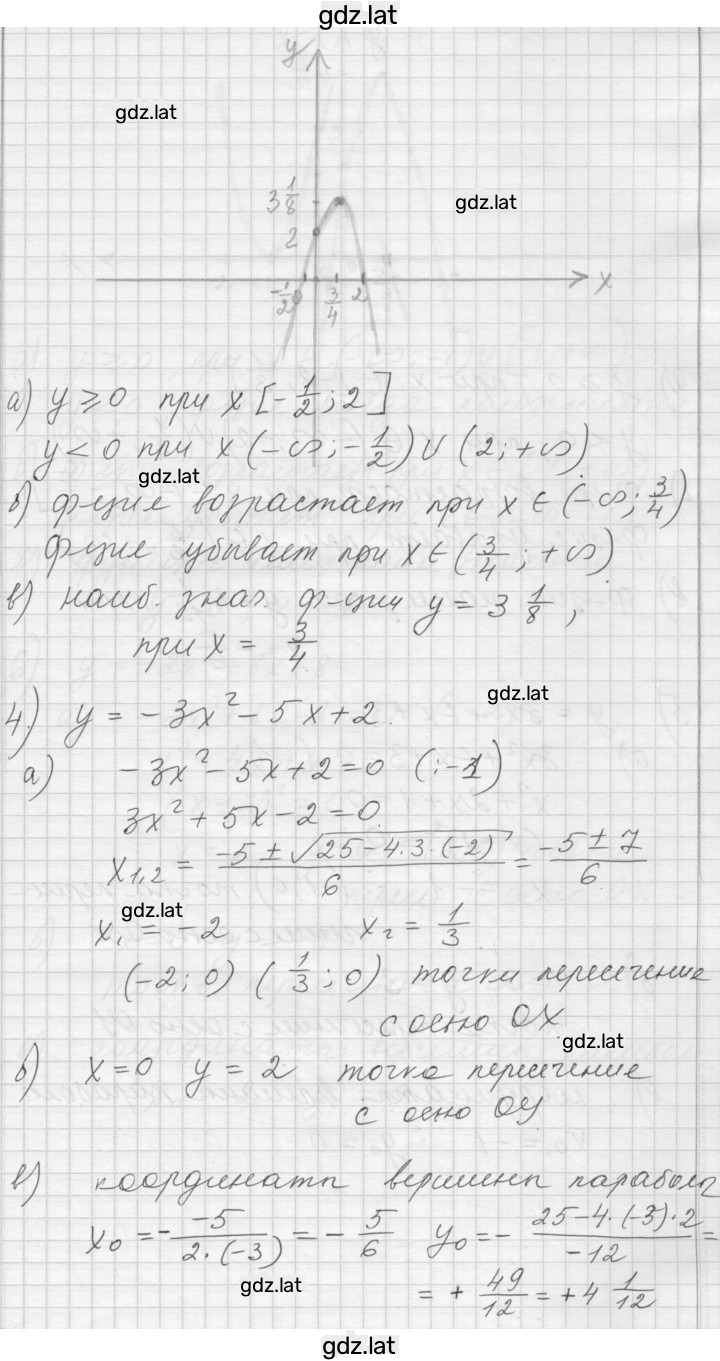 gdz.lat
y
gdz.lat
3 1/8
gdz.lat
2
-1/2 0 3/4 2 x
а) y ⩾ 0 при x [-1/2; 2]
y < 0 при x (-∞; -1/2) ∪ (2; +∞)
gdz.lat
б) ф-ция возрастает при x ∈ (-∞; 3/4)
ф-ция убывает при x ∈ (3/4; +∞)
в) наиб. знач. ф-ции y = 3 1/8,
при x = 3/4
gdz.lat
4) y = -3x² - 5x + 2.
а) -3x² - 5x + 2 = 0 (:-1)
3x² + 5x - 2 = 0.
x₁,₂ = (-5 ± √(25 - 4·3·(-2)))/6 = (-5 ± 7)/6
gdz.lat
x₁ = -2 x₂ = 1/3
(-2; 0) (1/3; 0) точки пересечение
с осью OX
gdz.lat
б) x = 0 y = 2 точка пересечение
с осью OY
в) координаты вершины параболы
x₀ = - -5/(2·(-3)) = - 5/6 y₀ = - (25-4·(-3)·2)/-12 =
gdz.lat
= + 49/12 = + 4 1/12
gdz.lat